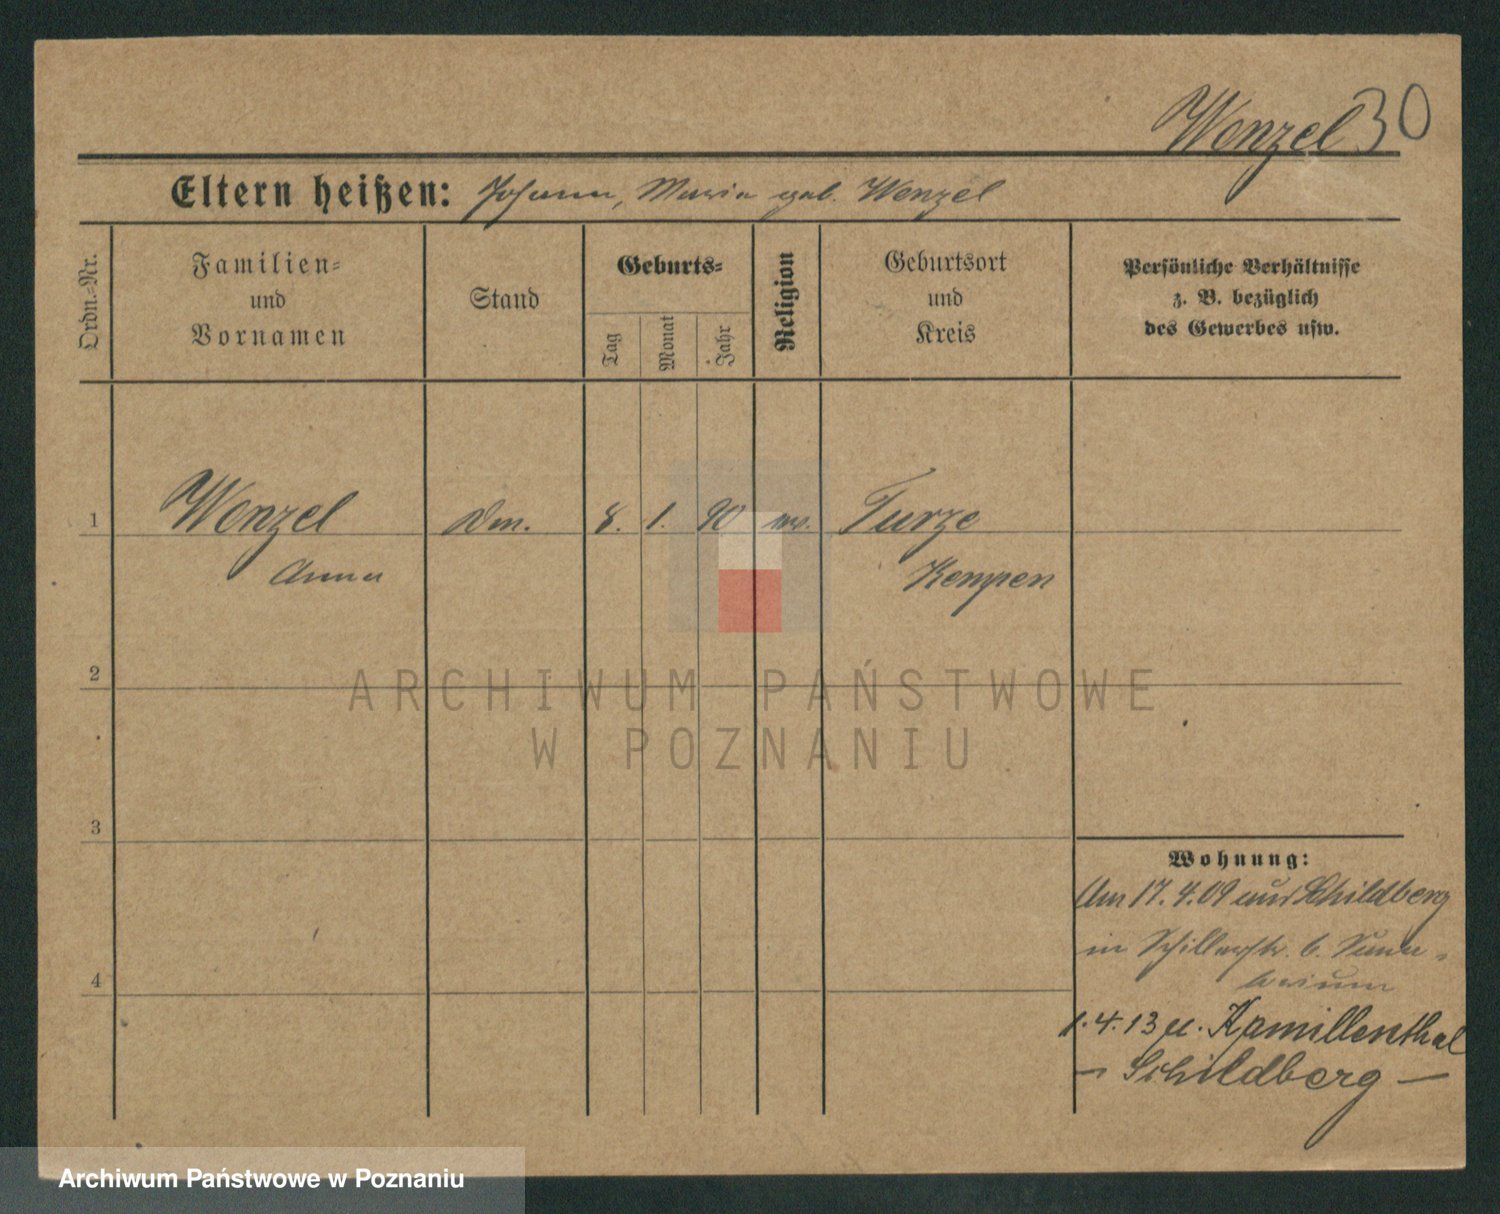 Wenzel 30
Eltern heißen: Johann, Maria geb. Wenzel
Ordn.=Nr.
Familien=
und
Vornamen
Stand
Geburts=
Tag
Monat
Jahr
Religion
Geburtsort
und
Kreis
Persönliche Verhältnisse
z. B. bezüglich
des Gewerbes usw.
1 Wenzel 8. 1. 90 Turze
Anna Kempen
2
3
4
Wohnung:
Am 17.4.09 aus Schildberg
in Schillerstr. b.
1.4.13 n. Kamillenthal
— Schildberg —
ARCHIWUM PAŃSTWOWE
W POZNANIU
Archiwum Państwowe w Poznaniu